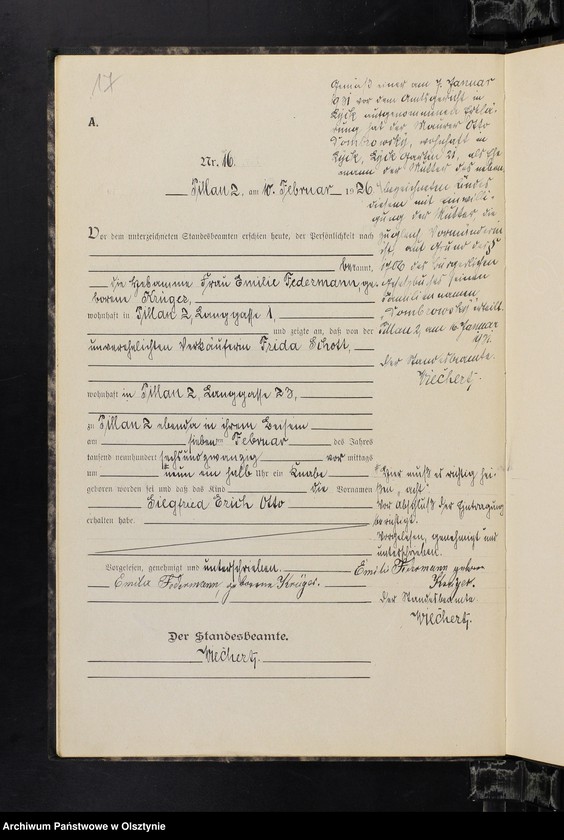 17
A.
Nr. 16.
Pillau 2, am 10. Februar 1926
Vor dem unterzeichneten Standesbeamten erschien heute, der Persönlichkeit nach
bekannt,
die Hebamme Frau Emilie Federmann, ge-
borene Krüger,
wohnhaft in Pillau 2, Langgasse 1,
und zeigte an, daß von der
unverehelichten Verkäuferin Frida Schott,
wohnhaft in Pillau 2, Langgasse 23,
zu Pillau 2 ebenda in ihrem Beisein
am sieben ten Februar des Jahres
tausend neunhundert sechsundzwanzig vor mittags
um neun ein halb Uhr ein Knabe
geboren worden sei und daß das Kind die Vornamen
Siegfried Erich Otto
erhalten habe.
Vorgelesen, genehmigt und unterschrieben.
Emilie Federmann, geborene Krüger.
Der Standesbeamte.
Wiechert
Gemäß einer am 7. Januar
1931 vor dem Amtsgericht in
Lyck aufgenommenen Erklä-
rung hat der Maurer Otto
Dombrowsky, wohnhaft in
Lyck, Lyck Garten 21, als Ehe-
mann der Mutter des neben-
bezeichneten Kindes
diesem mit Einwilli-
gung der Mutter, die
zugleich Vormünderin
ist, auf Grund des §
1706 des Bürgerlichen
Gesetzbuches seinen
Familiennamen
"Dombrowsky" erteilt.
Pillau 2, am Januar
1931.
Der Standesbeamte.
Wiechert
Hier muß es richtig hei-
ßen "acht".
Vor Abschluß der Eintragung
berichtigt.
Vorgelesen, genehmigt und
unterschrieben.
Emilie Federmann geborene
Krüger.
Der Standesbeamte.
Wiechert
Archiwum Państwowe w Olsztynie